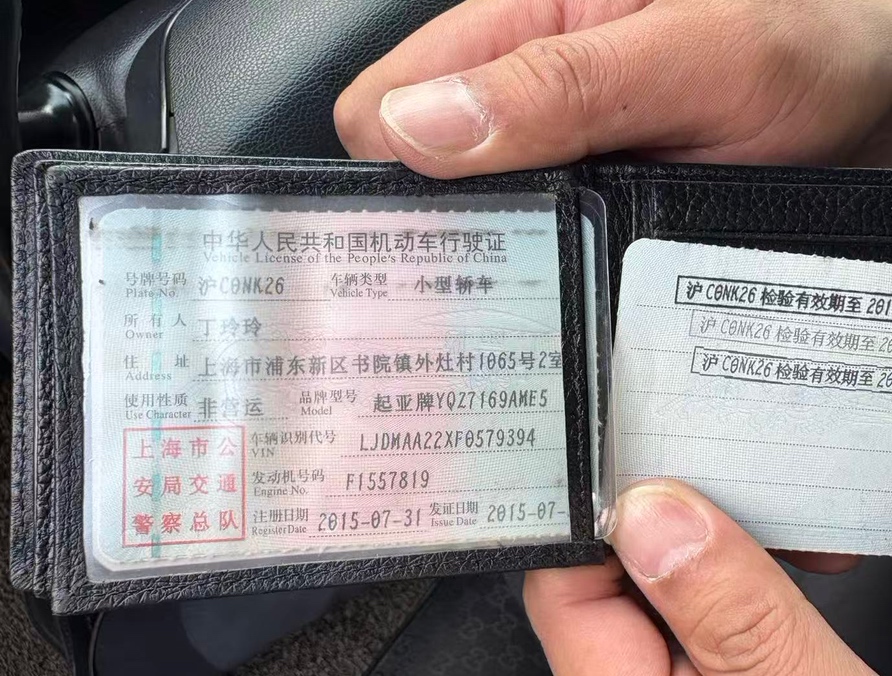 中华人民共和国机动车行驶证
Vehicle License of the People's Republic of China
号牌号码 沪C0NK26 车辆类型 小型轿车
Plate No. Vehicle Type
所有人 丁玲玲
Owner
住址 上海市浦东新区书院镇外灶村1065号2室
Address
使用性质 非营运 品牌型号 起亚牌YQZ7169AME5
Use Character Model
上海市公
安局交通
警察总队
车辆识别代号 LJDMAA22XF0579394
VIN
发动机号码 F1557819
Engine No.
注册日期 2015-07-31 发证日期 2015-07-
Register Date Issue Date
沪C0NK26 检验有效期至 201
沪C0NK26 检验有效期至 20
沪C0NK26 检验有效期至 20